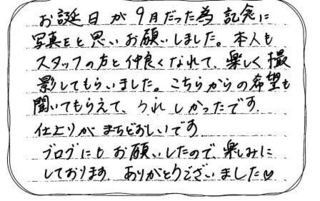 お誕日が9月だった為記念に
写真をと思いお願いしました。本人も
スタッフの方と仲良くなれて、楽しく撮
影してもらいました。こちらからの希望も
聞いてもらえて、うれしかったです
仕上りがまちどおしいです
ブログにもお願いしたので、楽しみに
しております ありがとうございました♡